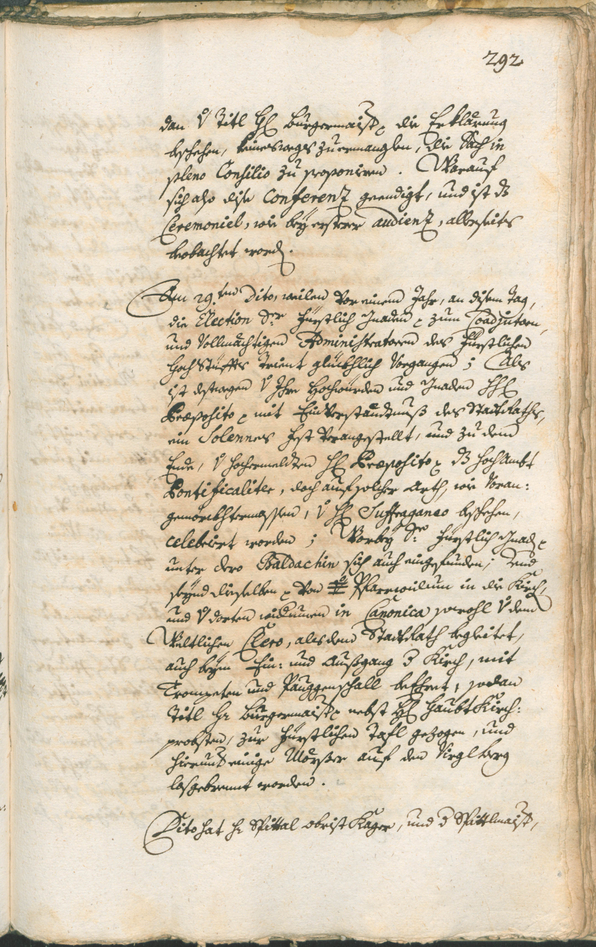 292
dan v Titl H: Burgermaister die Erklärung
beschehen, keineswegs zuermanglen, die Sach in
pleno Consilio zu proponiren. Worauf
sich also dise Conferenz geendigt, und ist ds
Ceremoniel, wie bey ersterer audienz, allerseits
beobachtet word.
Am 29.ten Dito, weilen vor einem Jahr, an disem Tag,
die Election Sr Fürstlich Gnaden zum Coadjutorn,
und Vollmächtigen Administratoren des Fürstlichen
HochStüffts Trient glücklich vorgangen; Als
ist destwegen v Ihro Hochwürden und Gnaden H:
Præposito mit Einverständtnuß des StattRaths,
ein Solennes Fest veranstellt, und zu dem
Ende, v Hochermeldten H: Præposito ds HochAmbt
Pontificaliter, doch auf solcher Arth, wie voran:
gemörkhtermassen, v H: Suffraganeo beschehen,
celebrirt worden; Worbey Sr Fürstlich Gnad
unter dero Baldachin sich auch eingefunden; Und
seynd dieselben von Pfarrwidum in die Kirch,
und v dorten widerumen in Canonica sowohl v dem
Weltlichen Clero, als dem StattRath begleitet,
auch beym Ein: und Außgang d Kirch, mit
Trompeten und Pauggenschall beehrt; sodan
Titl H: Burgermaister nebst H: Haubt Kirch:
probsten, zur Fürstlichen Tafl gezogen, und
hierunter einige Mörser auf den Virglberg
losgebrennt worden.
Dito hat H: Spittal obrist Kager, und d Spittlmaister,